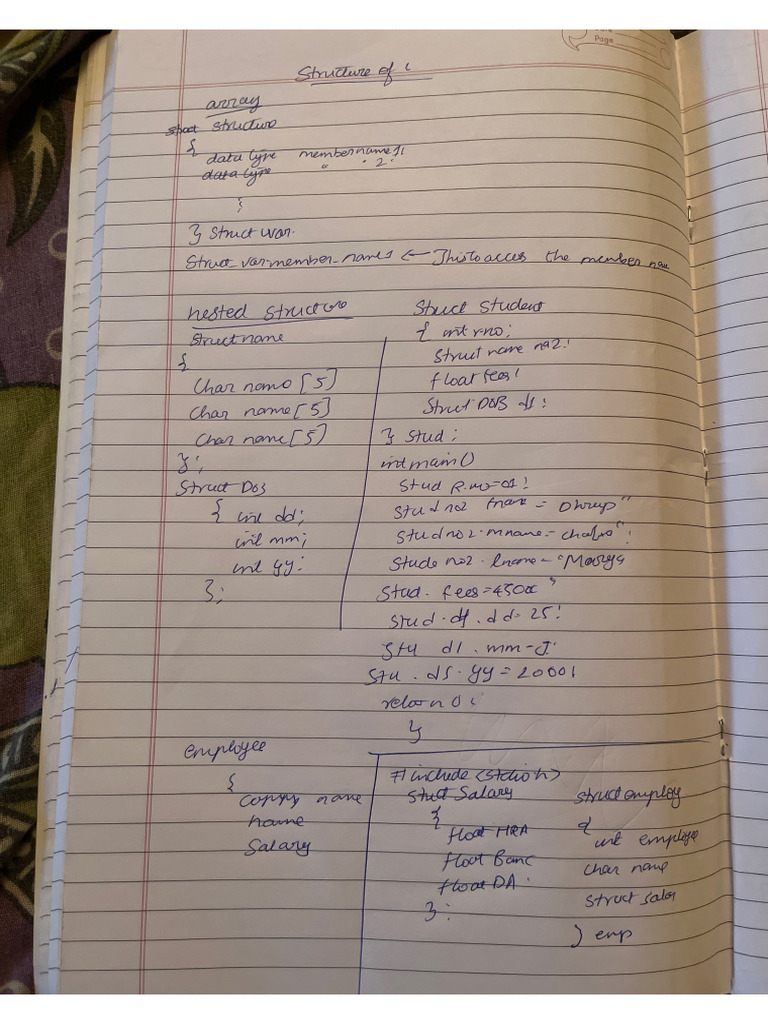 Page
Structure of C
array
struct structure
{
data type membername1;
data type " " 2;
}
} Struct var.
Struct_var.member_name1 ← This to access the member name
nested structure
Struct name
{
Char name [5]
Char name [5]
Char name [5]
};
Struct DOB
{ int dd;
int mm;
int yy;
};
Struct Student
{ int rno;
Struct name na2;
float fees;
Struct DOB d1;
} Stud;
int main()
Stud R.no=01;
Stud no2 fname = Dhrup"
Stud no2. mname =
Stude no2. lname = "
Stud. fees = 4500
Stud. d1. dd = 25;
Stu d1. mm =
Stu. d1. yy = 2000;
return 0;
}
employee
{
name
name
Salary
#include <stdio h>
Stuct Salary
{
float HRA
float Basic
float DA
};
struct employ
{
int employee
char name
struct salar
} emp